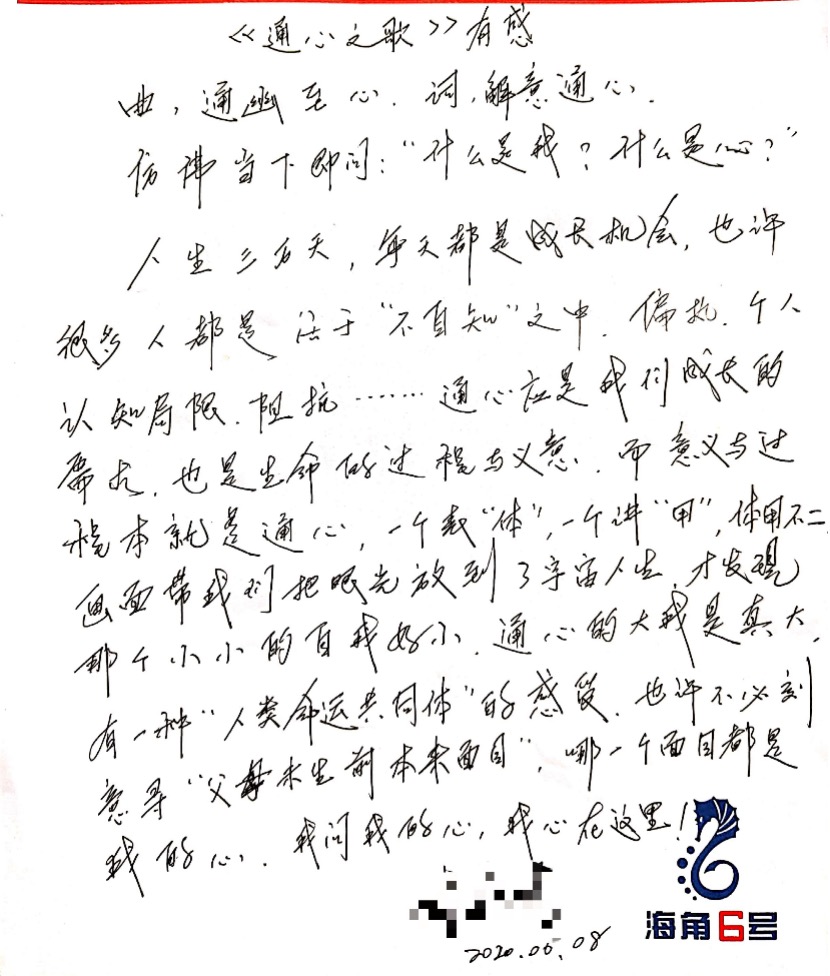 《通心之歌》有感
曲，通幽至心．词，解意通心．
仿佛当下即问：“什么是我？什么是心？”
人生三万天，每天都是成长机会，也许
很多人都是活于“不自知”之中．偏执．个人
认知局限．阻抗……通心应是我们成长的
需求．也是生命的过程与义意．而意义与过
程本就是通心，一个武“体”，一个讲“用”，体用不二，
画面带我们把眼光放到了宇宙人生，才发现
那个小小的自我好小．通心的大我是真大，
有一种“人类命运共同体”的感受．也许不必刻
意寻“父母未生前本来面目”，哪一个面目都是
我的心．我问我的心，我心在这里！
2020.06.08
海角6号